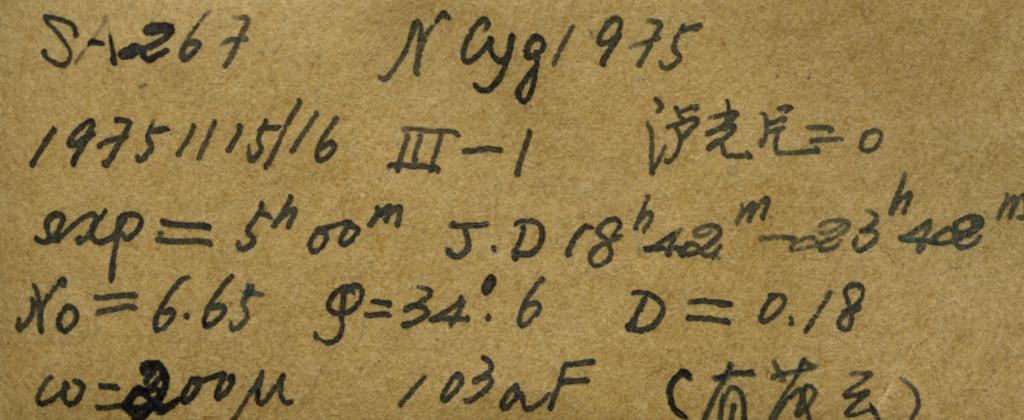 SA267 N Cyg 1975
1975 11 15/16 III-1 滤光片=0
exp=5ʰ00ᵐ J.D 18ʰ42ᵐ-23ʰ42ᵐ
X₀=6.65 φ=34°.6 D=0.18
ω=200μ 103aF (有薄云)